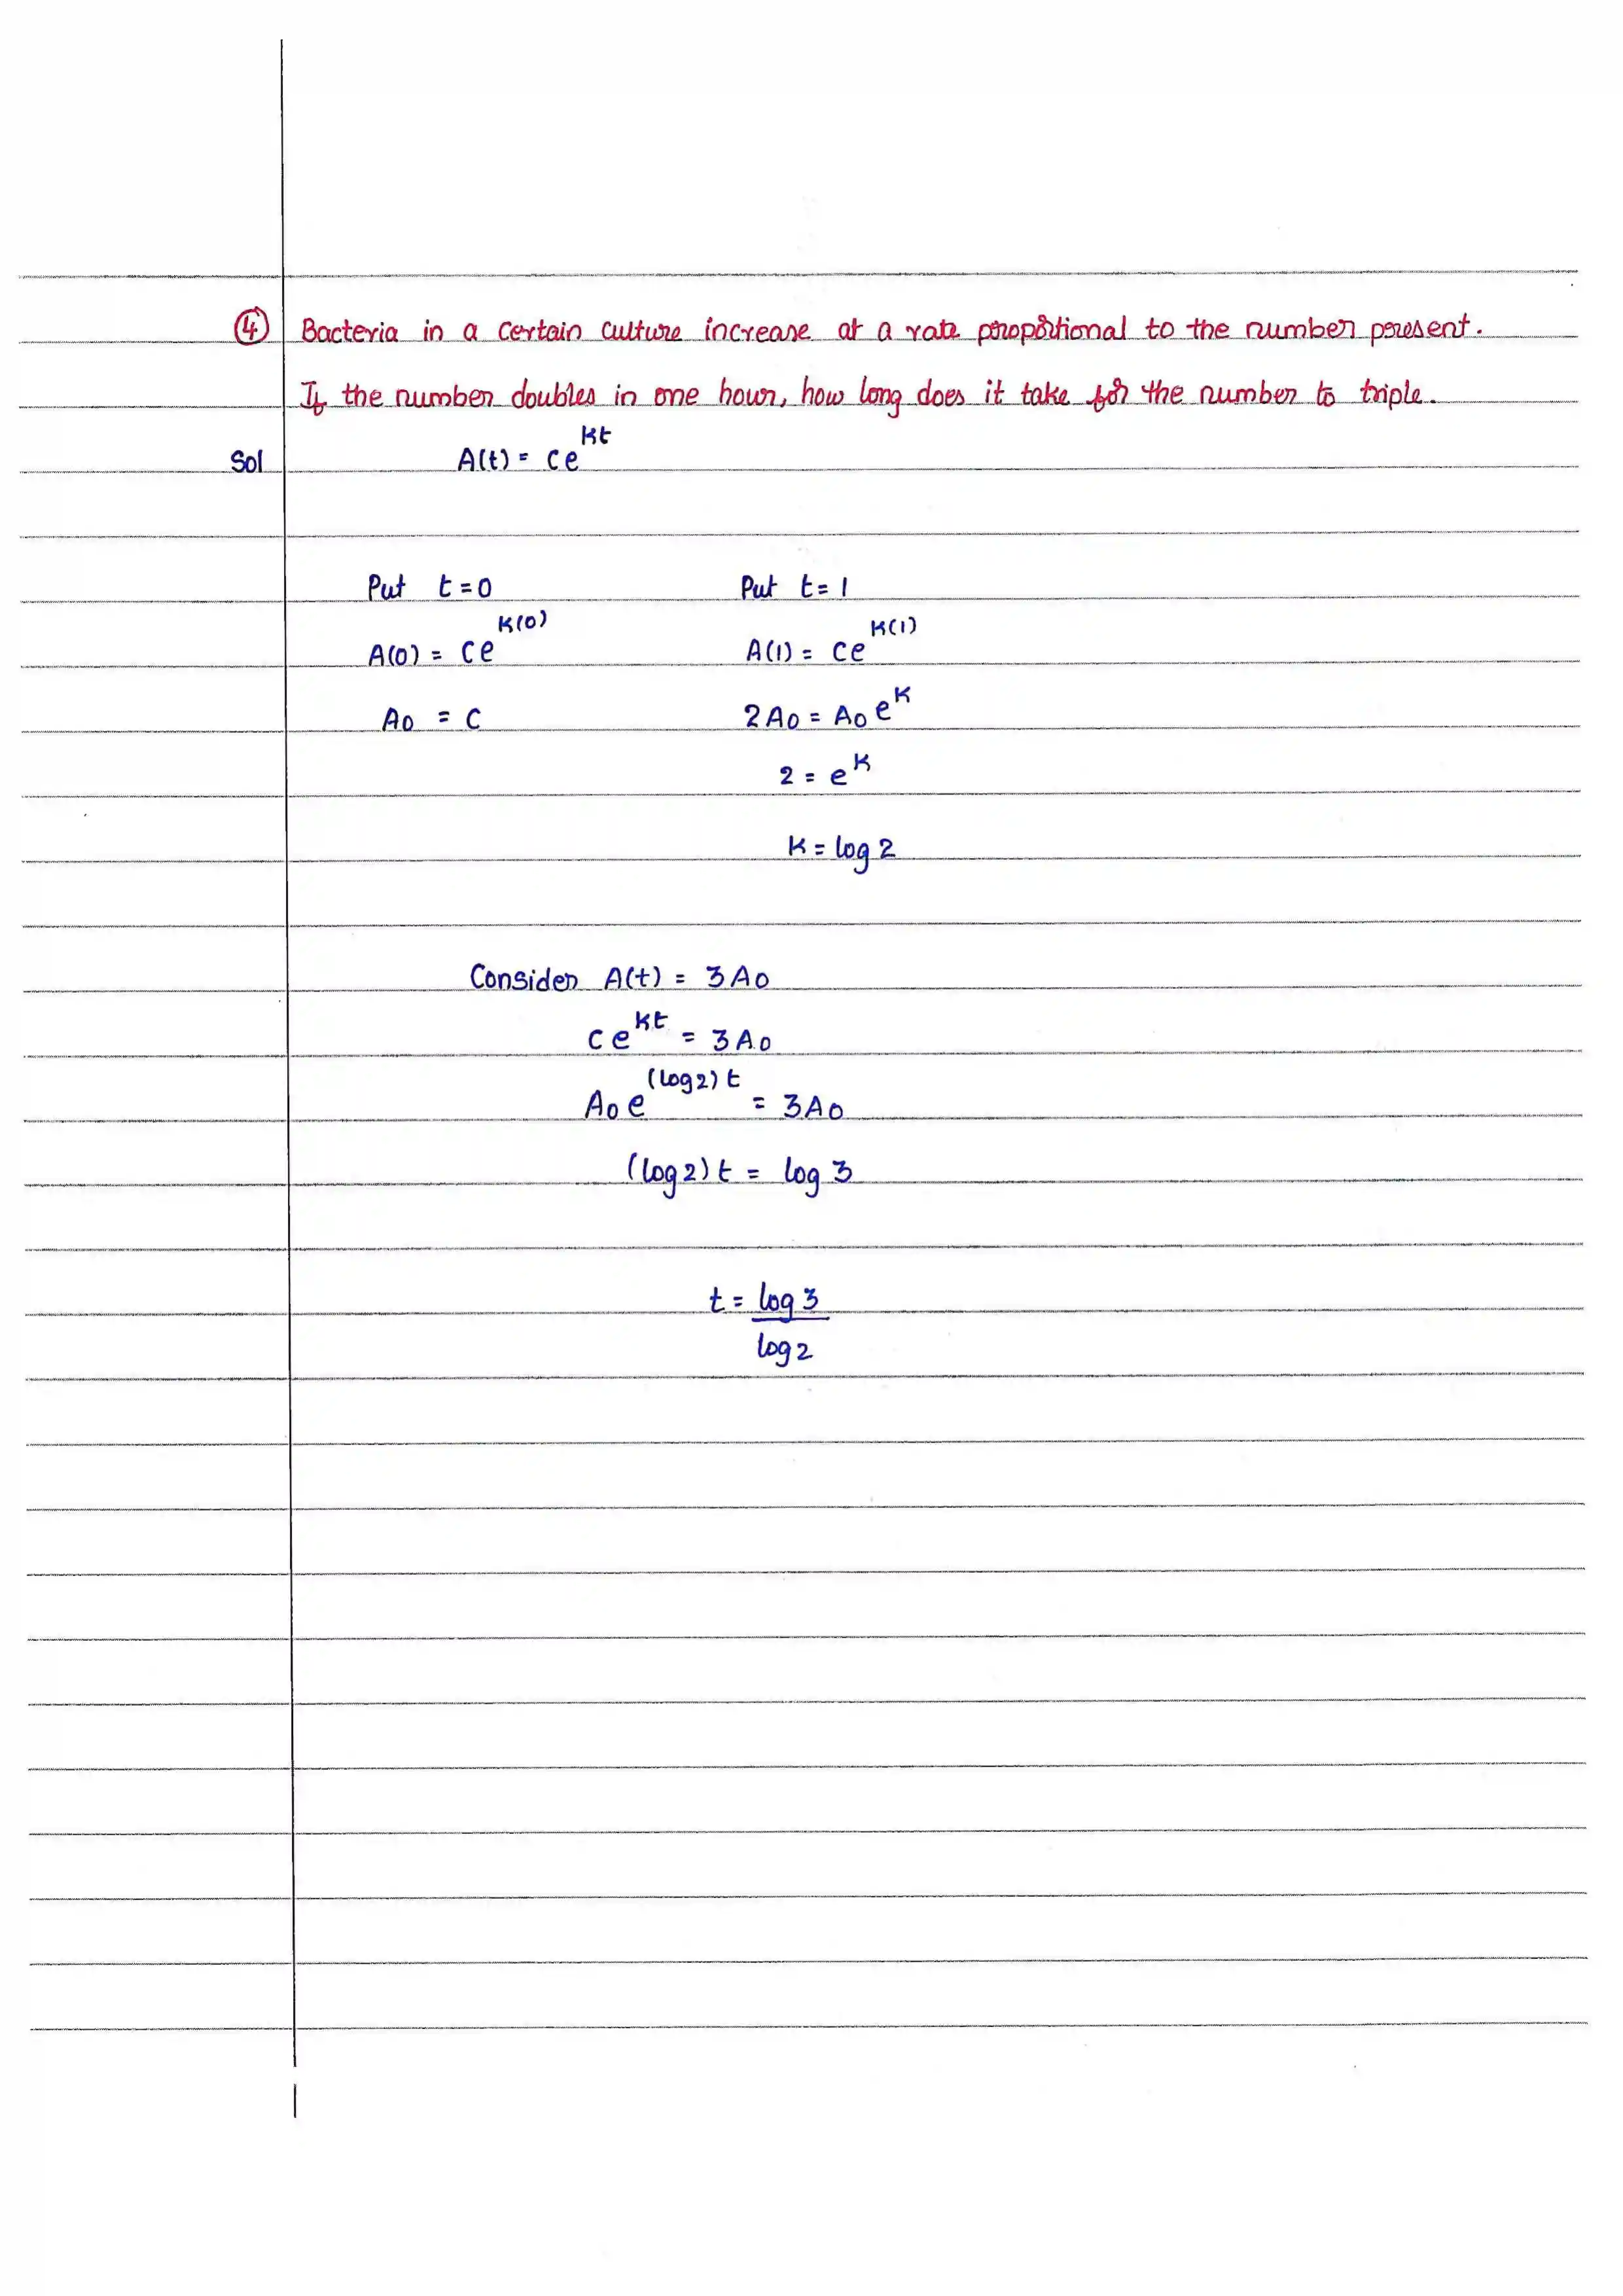 ④ Bacteria in a certain culture increase at a rate proportional to the number present.
If the number doubles in one hour, how long does it take for the number to triple.
Sol A(t) = ce^{kt}
Put t=0 Put t=1
A(0) = ce^{k(0)} A(1) = ce^{k(1)}
A0 = c 2A0 = A0 e^k
2 = e^k
k = log 2
Consider A(t) = 3A0
ce^{kt} = 3A0
A0 e^{(log2)t} = 3A0
(log2)t = log 3
t = log 3
log 2